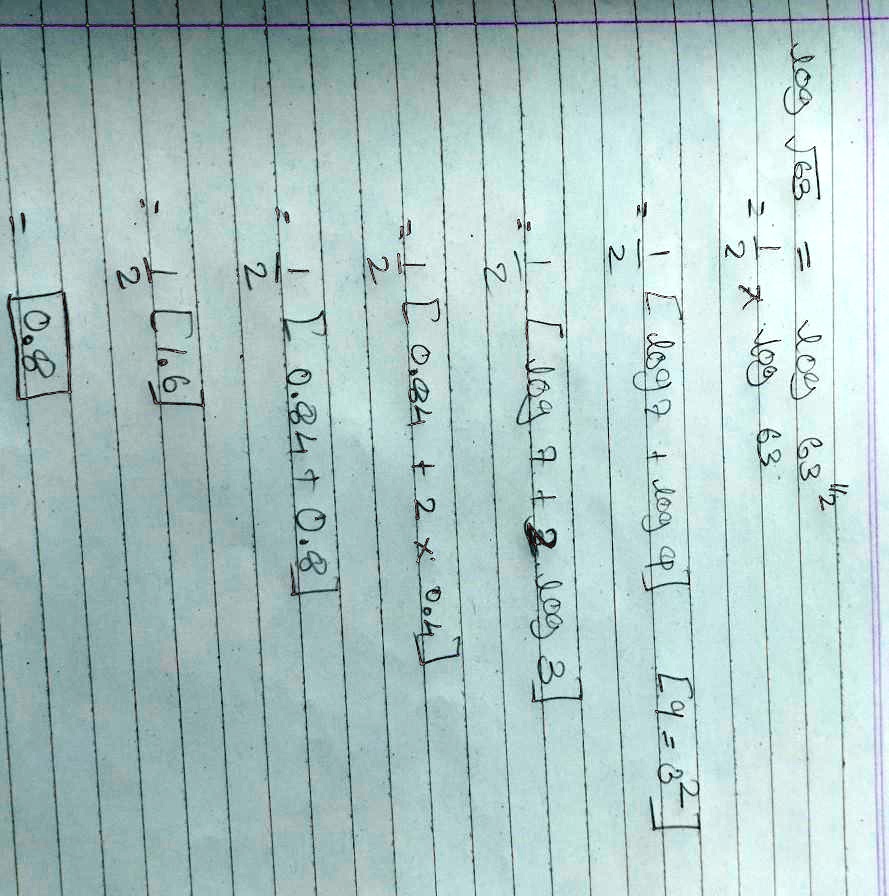 log √63 = log 63^1/2
= 1/2 × log 63
= 1/2 [log 7 + log 9] [9 = 3²]
= 1/2 [log 7 + 2 log 3]
= 1/2 [0.84 + 2 × 0.4]
= 1/2 [0.84 + 0.8]
= 1/2 [1.6]
= 0.8